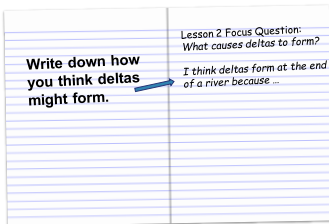 Write down how
you think deltas
might form.
Lesson 2 Focus Question:
What causes deltas to form?
I think deltas form at the end
of a river because ...